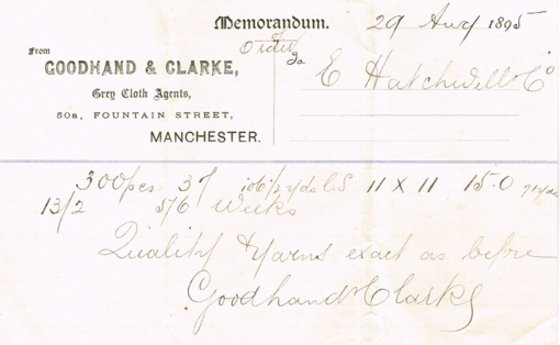 Memorandum.
29 Aug 1895
Order
From
To
GOODHAND & CLARKE,
E Hatchwell & Co
Grey Cloth Agents,
50a, FOUNTAIN STREET,
MANCHESTER.
300 pcs 37 106 1/2 yds 11 X 11 15.0
13/2 5/6 Weeks
Quality & Yarns exact as before
Goodhand & Clarke